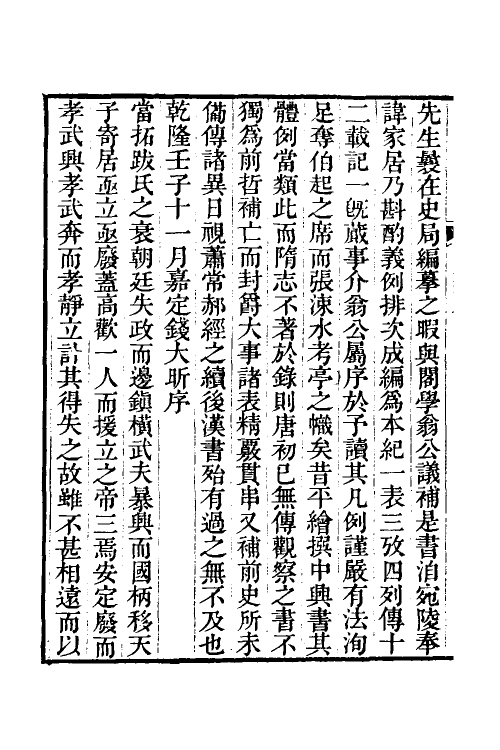 先生曩在史局編摹之暇與閣學翁公議補是書洎宛陵奉
諱家居乃斟酌義例排次成編為本紀一表三攷四列傳十
二載記一旣蕆事介翁公屬序於予讀其凡例謹嚴有法洵
足奪伯起之席而張涑水考亭之幟矣昔平繪撰中興書其
體例當類此而隋志不著於錄則唐初已無傳觀察之書不
獨為前哲補亡而封爵大事諸表精覈貫串又補前史所未
備傳諸異日視蕭常郝經之續後漢書殆有過之無不及也
乾隆壬子十一月嘉定錢大昕序
當拓跋氏之衰朝廷失政而邊鎮橫武夫暴興而國柄移天
子寄居亟立亟廢蓋高歡一人而援立之帝三焉安定廢而
孝武興孝武奔而孝靜立計其得失之故雖不甚相遠而以